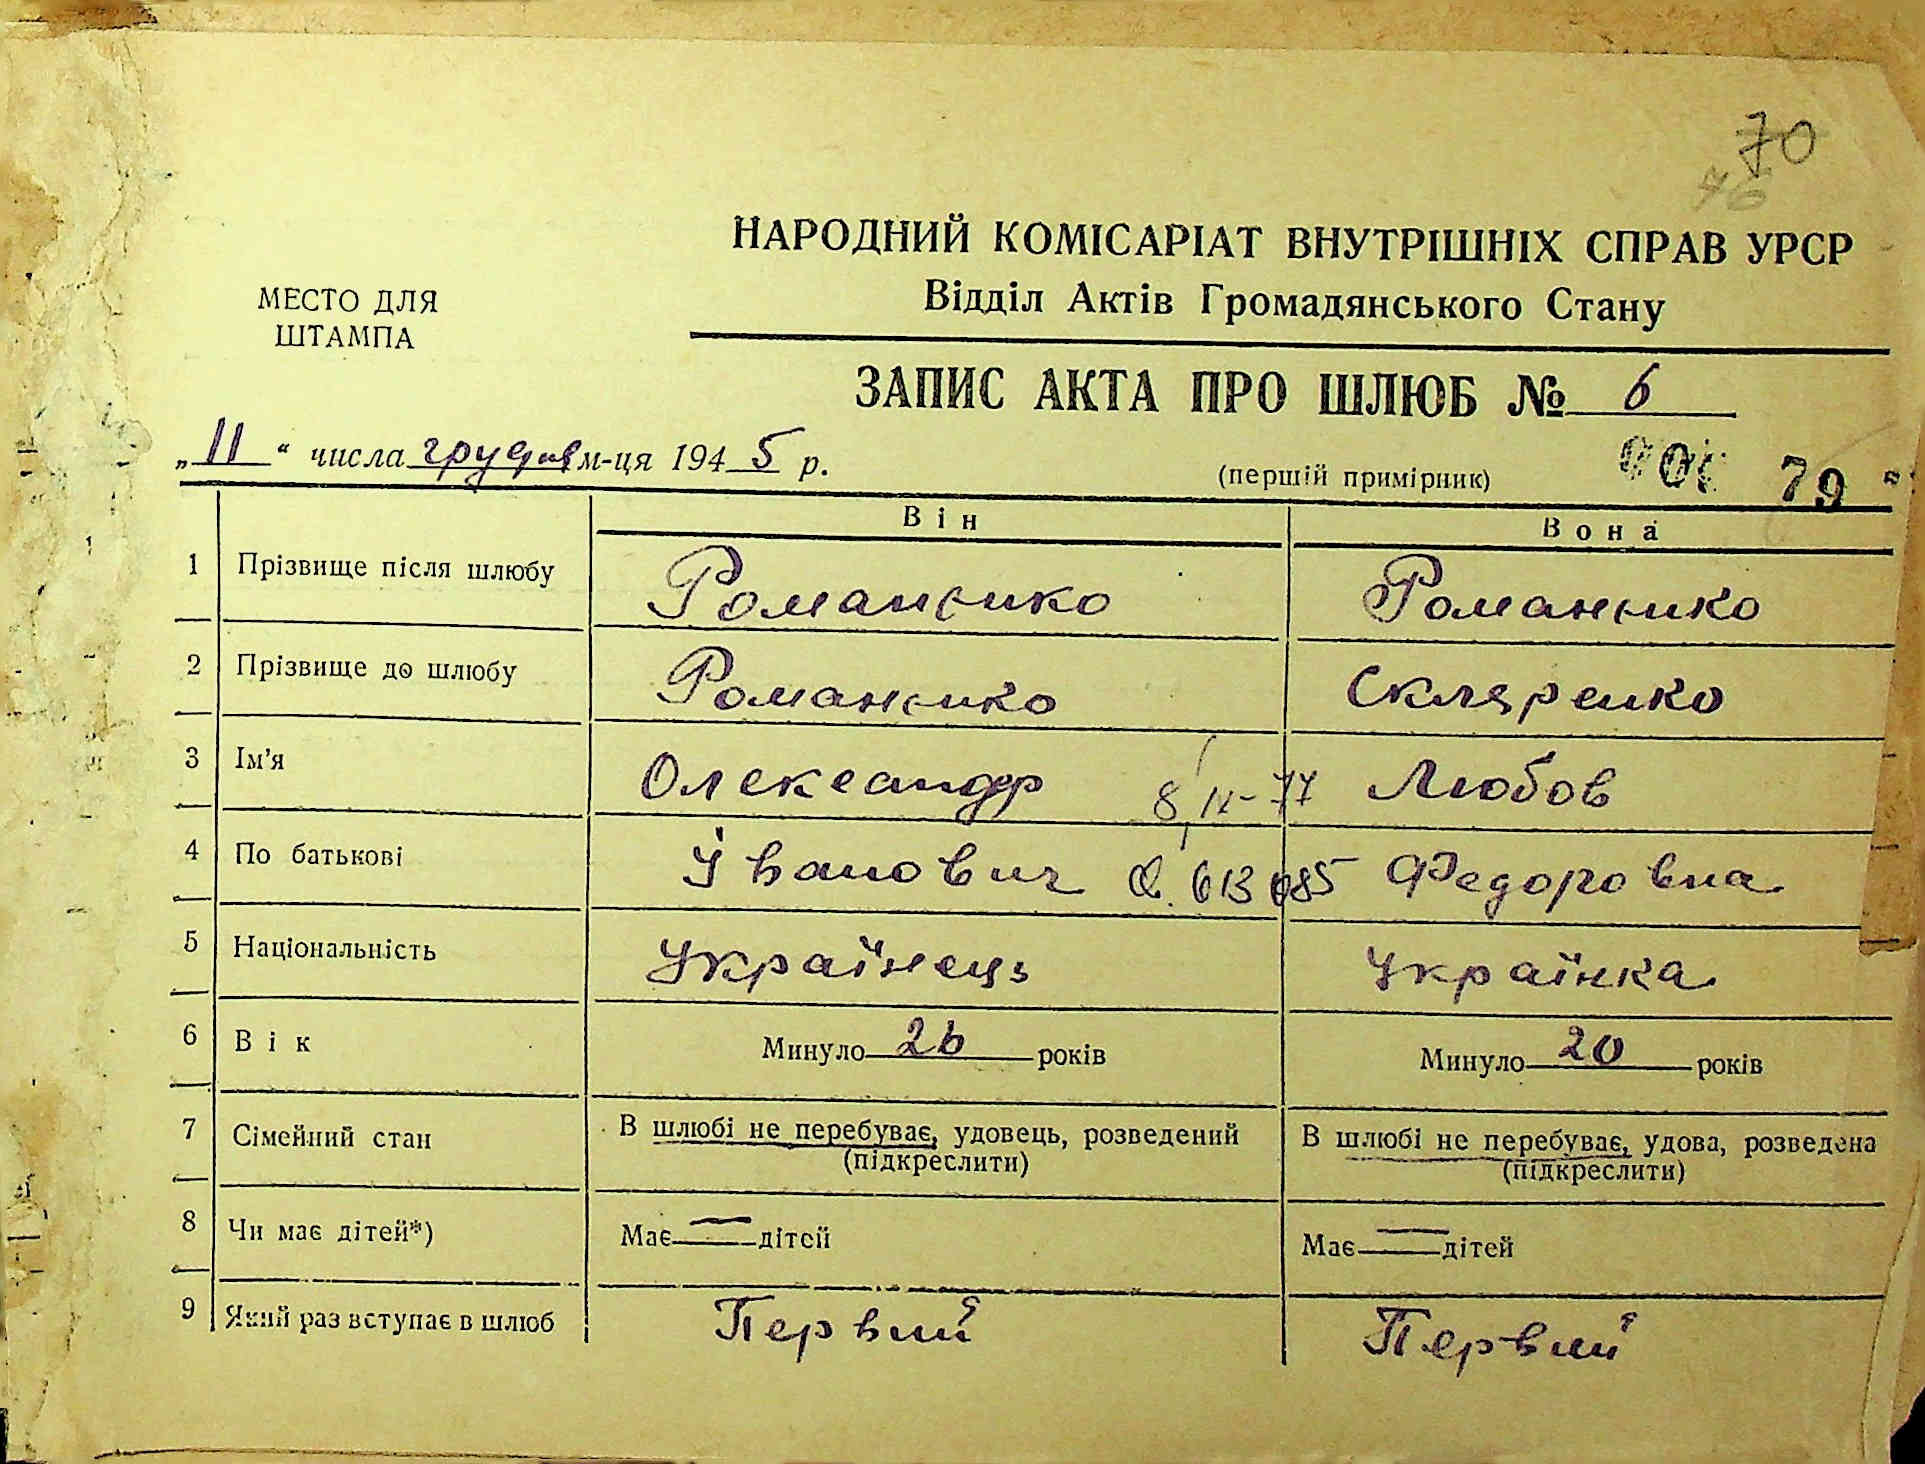 70
46
НАРОДНИЙ КОМІСАРІАТ ВНУТРІШНІХ СПРАВ УРСР
Відділ Актів Громадянського Стану
МЕСТО ДЛЯ
ШТАМПА
ЗАПИС АКТА ПРО ШЛЮБ № 6
„11“ числа грудня м-ця 1945 р.
(перший примірник)
79
Він Вона
1 Прізвище після шлюбу Романенко Романенко
2 Прізвище до шлюбу Романенко Скляренко
3 Ім'я Олександр 8/IX-77 Любов
4 По батькові Іванович 613085 Федоровна
5 Національність Українець Українка
6 Вік Минуло 26 років Минуло 20 років
7 Сімейний стан В шлюбі не перебуває, удовець, розведений В шлюбі не перебуває, удова, розведена
(підкреслити) (підкреслити)
8 Чи має дітей*) Має — дітей Має — дітей
9 Який раз вступає в шлюб Первий Первий